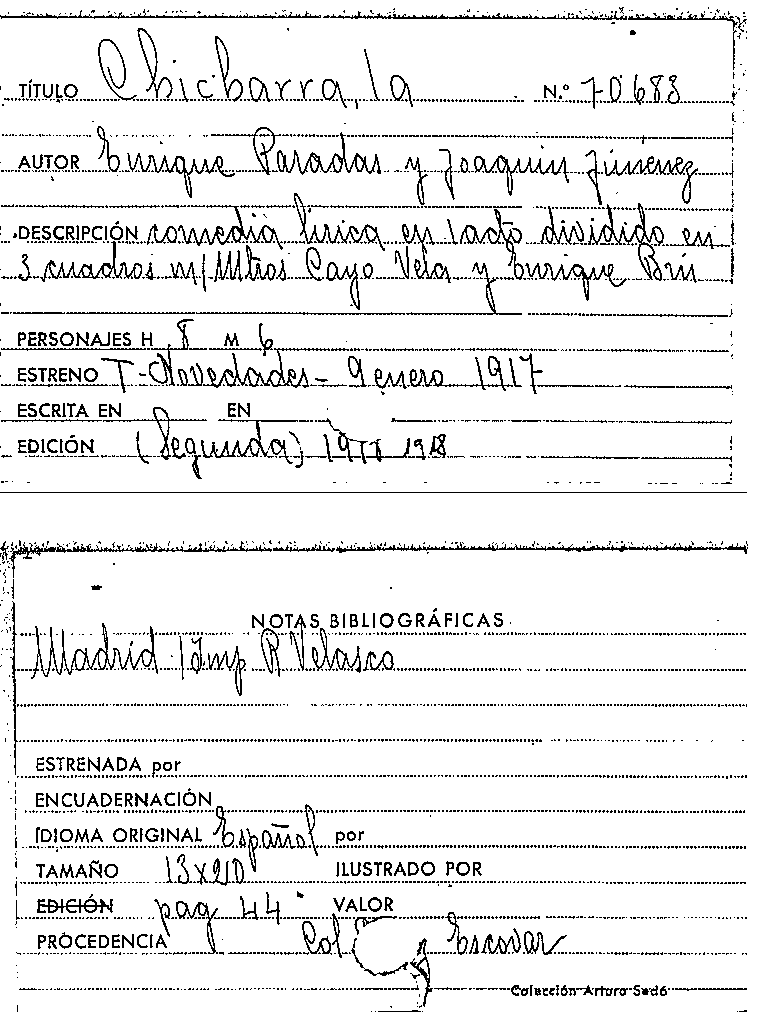 TÍTULO Chicharra, la N.º 70688
AUTOR Enrique Paradas y Joaquin Jiménez
DESCRIPCIÓN comedia lirica en 1 acto dividido en
3 cuadros m/ Mtros Cayo Vela y Enrique Brú
PERSONAJES H 8 M 6
ESTRENO T-Novedades- 9 enero 1917
ESCRITA EN EN
EDICIÓN (Segunda) 1918
NOTAS BIBLIOGRÁFICAS
Madrid / Imp R Velasco
ESTRENADA por
ENCUADERNACIÓN
IDIOMA ORIGINAL Español por
TAMAÑO 13x20 ILUSTRADO POR
EDICIÓN pag 44 VALOR
PROCEDENCIA Col y Escovar
Colección Arturo Sedó